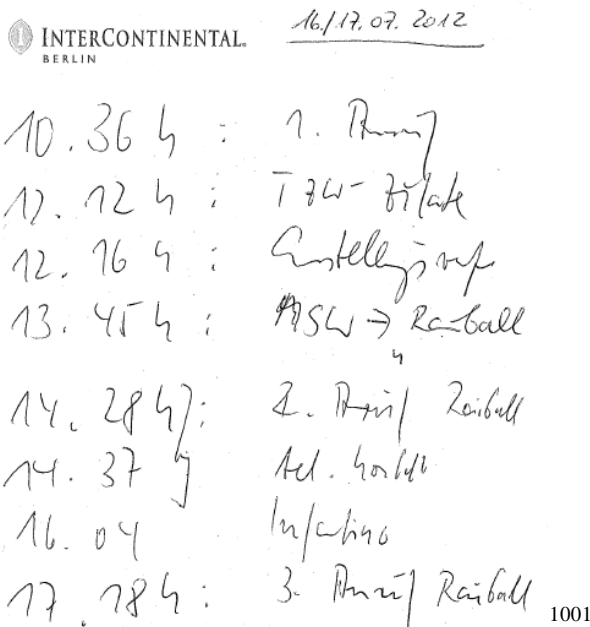 INTERCONTINENTAL.
BERLIN
16./17.07.2012
10.36 h : 1. Anruf
12.12 h : TZW - Zitate
12.16 h :
13.45 h : WSW → Rauball
14.28 h : 2. Anruf Rauball
14.37 Tel.
16.04 Infantino
17.18 h : 3. Anruf Rauball
1001